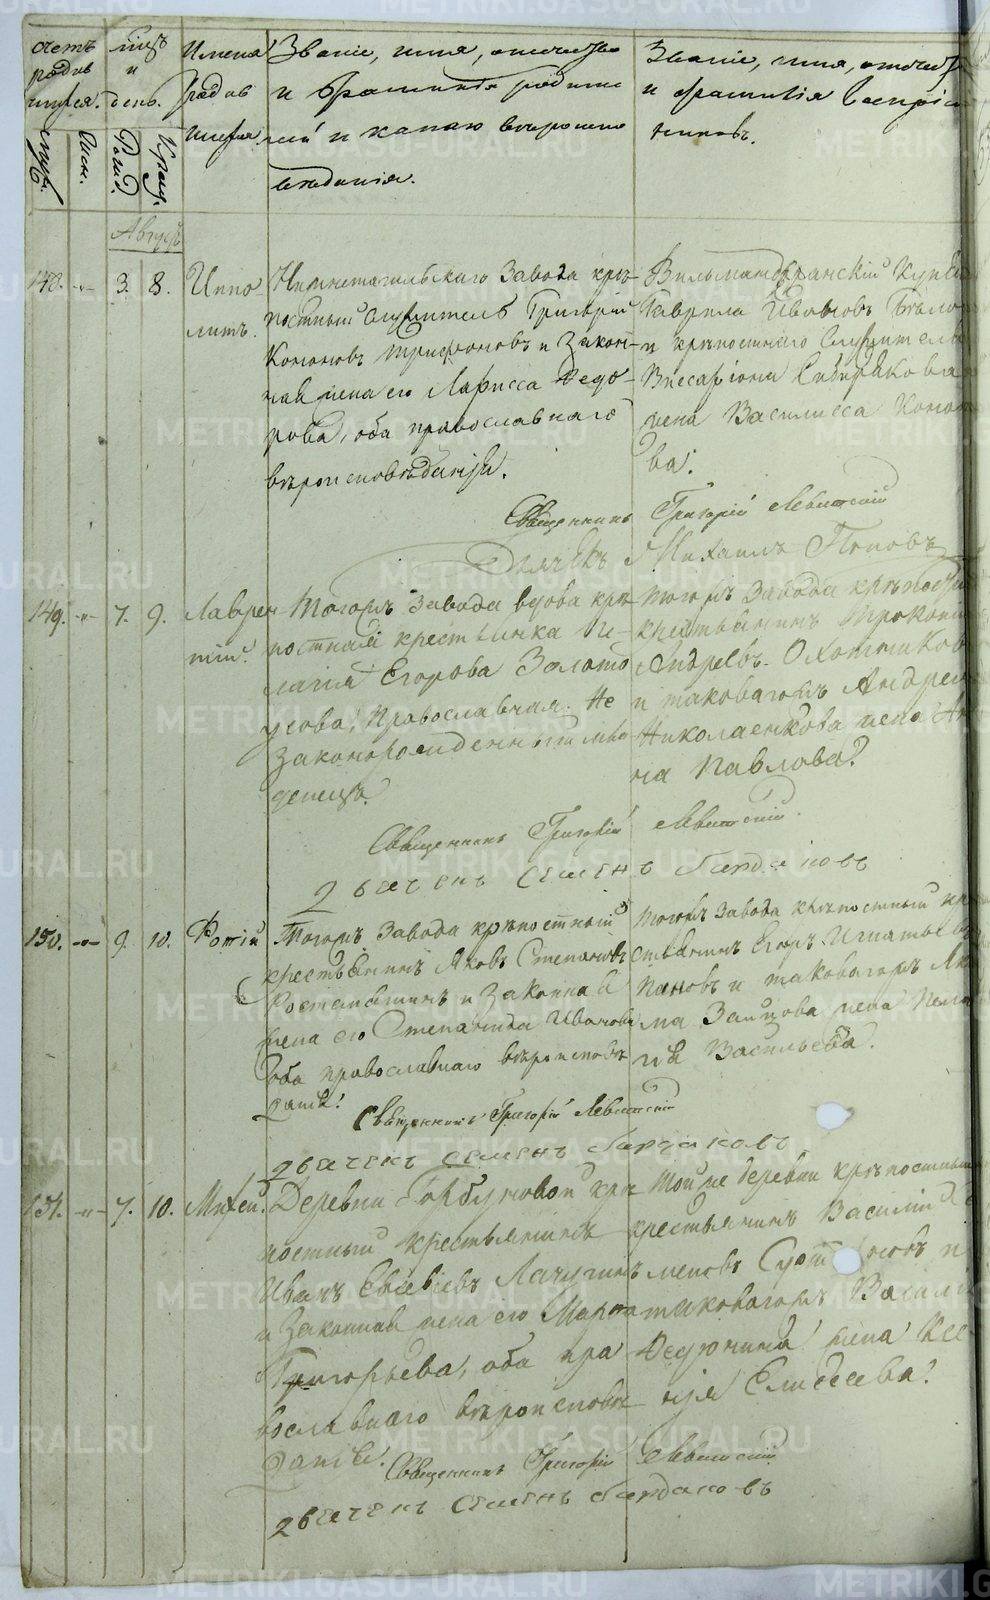 Счетъ родив шихся.
Мѣсяц и день.
Имена родив шихся.
Званіе, имя, отчество
и фамилія родите
лей и какаго вѣроиспо
вѣданія.
Званіе, имя, отчест
и фамилія воспріем
никовъ.
муж. жен. Рожд. Крещ.
Августъ
148. -"- 3. 8. Иппо
литъ.
Нижнетагильскаго Завода крѣ
постный служитель Григорій
Кононовъ Трифоновъ и Закон
ная жена его Ларисса Ѳедо
рова, оба православнаго
вѣроисповѣданія.
Гаврила Ивановъ Бѣло
и крѣпостнаго служителя
Виссаріона Сибирякова
жена Василисса Коно
ва.
Священникъ Григорій Левитскій
Дьячекъ Михаилъ Поповъ
149. -"- 7. 9. Лаврен
тій.
Тогожъ Завода вдова крѣ
постная крестьянка Пе
лагія Егорова Золото
усова, Православная. Не
законорожденный мла
денецъ.
Тогожъ Завода крѣпостн
крестьянинъ Прокопій
Андреевъ Охотников
и таковагожъ Андрея
Николаенкова жена Ан
на Павлова.
Священникъ Григорій Левитскій.
Дьячекъ Семенъ Бардаковъ
150. -"- 9. 10. Фотій
Тогожъ Завода крѣпостный
крестьянинъ Яковъ Степановъ
и Законная
жена его Степанида Иванова
оба православнаго вѣроисповѣ
данія.
Тогожъ Завода крѣпостный кре
стьянинъ Егоръ Игнатьевъ
Пановъ и таковагожъ Яки
ма Заицова жена Пела
гія Васильева.
Священникъ Григорій Левитскій
Дьячекъ Семенъ Бардаковъ
151. -"- 7. 10. Михей.
Деревни Горбуновой крѣ
постный крестьянинъ
Иванъ Евсевіевъ Лачугинъ
и Законная жена его Марѳа
Григорьева, оба пра
вославнаго вѣроисповѣ
данія.
Тойже деревни крѣпостный
крестьянинъ Василій Се
меновъ и
таковагожъ Василія
Ѳедюнина жена Ксе
нія Елисеева.
Священникъ Григорій Левитскій
Дьячекъ Семенъ Бардаковъ
METRIKI.GASO-URAL.RU